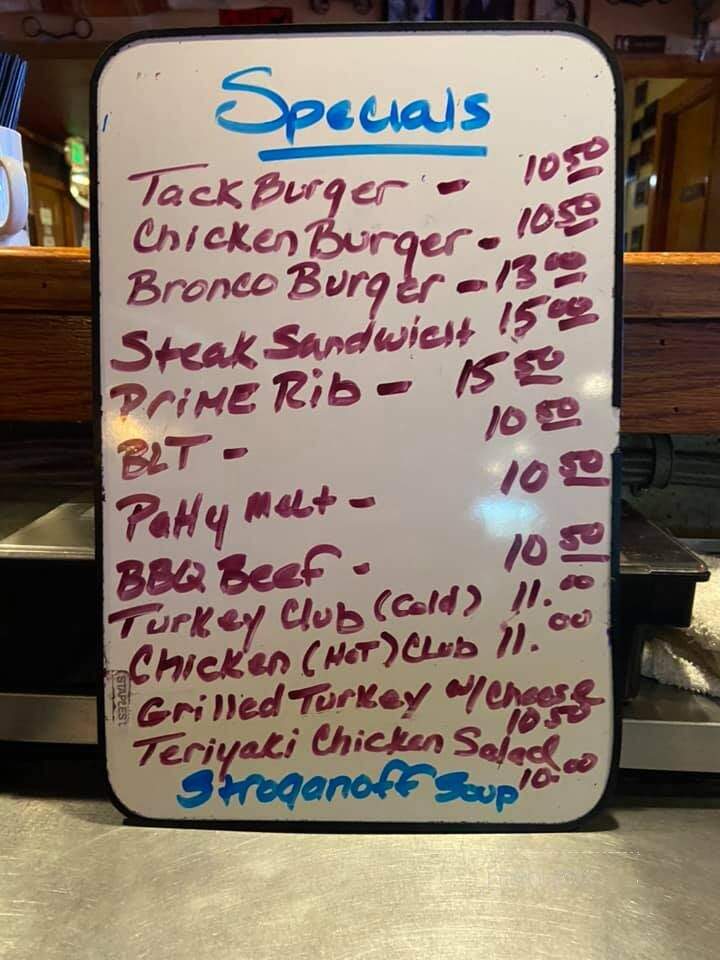 Specials
Tack Burger - 10 50
Chicken Burger - 10 50
Bronco Burger - 13 00
Steak Sandwich 15 00
PRIME Rib - 15 50
BLT - 10 50
Patty Melt - 10 50
BBQ Beef - 10 50
Turkey Club (Cold) 11.00
Chicken (HOT) Club 11.00
Grilled Turkey w/ Cheese
10 50
Teriyaki Chicken Salad
10.00
Stroganoff Soup
STAPLES